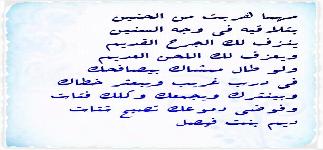 مهما هربت من الحنين
بتلاقيه فى وجه السنين
ينزف لك الجرح القديم
ويعزف لك اللحن العديم
ولو طال ممشاك بيصافحك
فى درب غريب ويبعثر خطاك
وبينثرك ويجمعك وكلك فتات
وفوضى دموعك تصبح شتات
ديم بنت فيصل